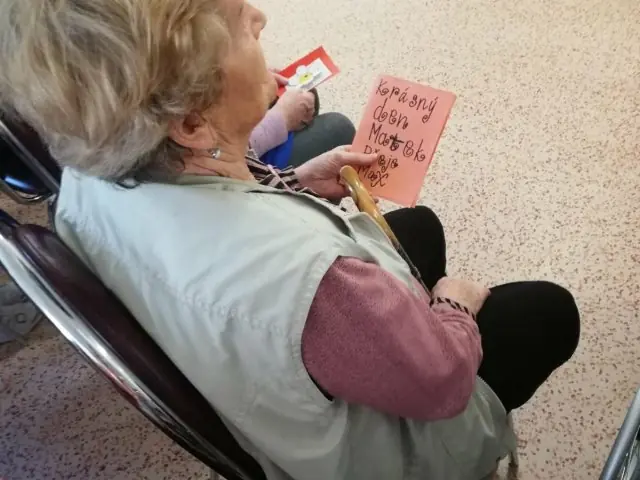 Krásný
den
Matek
Přeje
Max